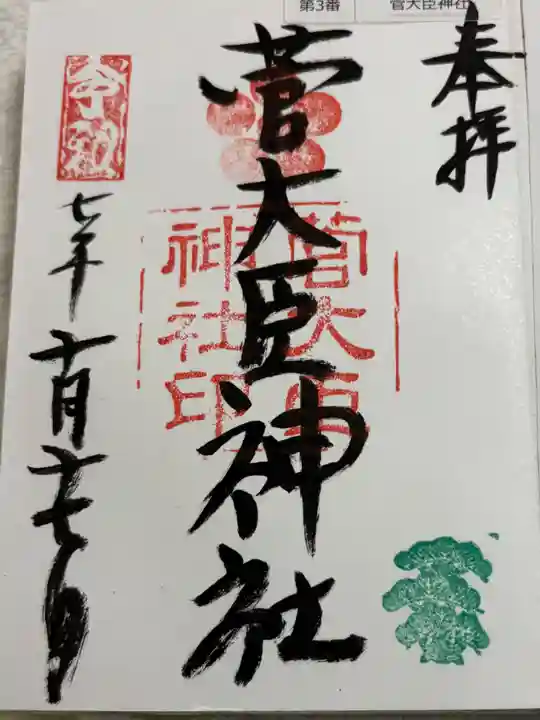 第3番 菅大臣神社
奉拝
菅大臣神社
菅大臣
神社印
令和
七年
十月十七日